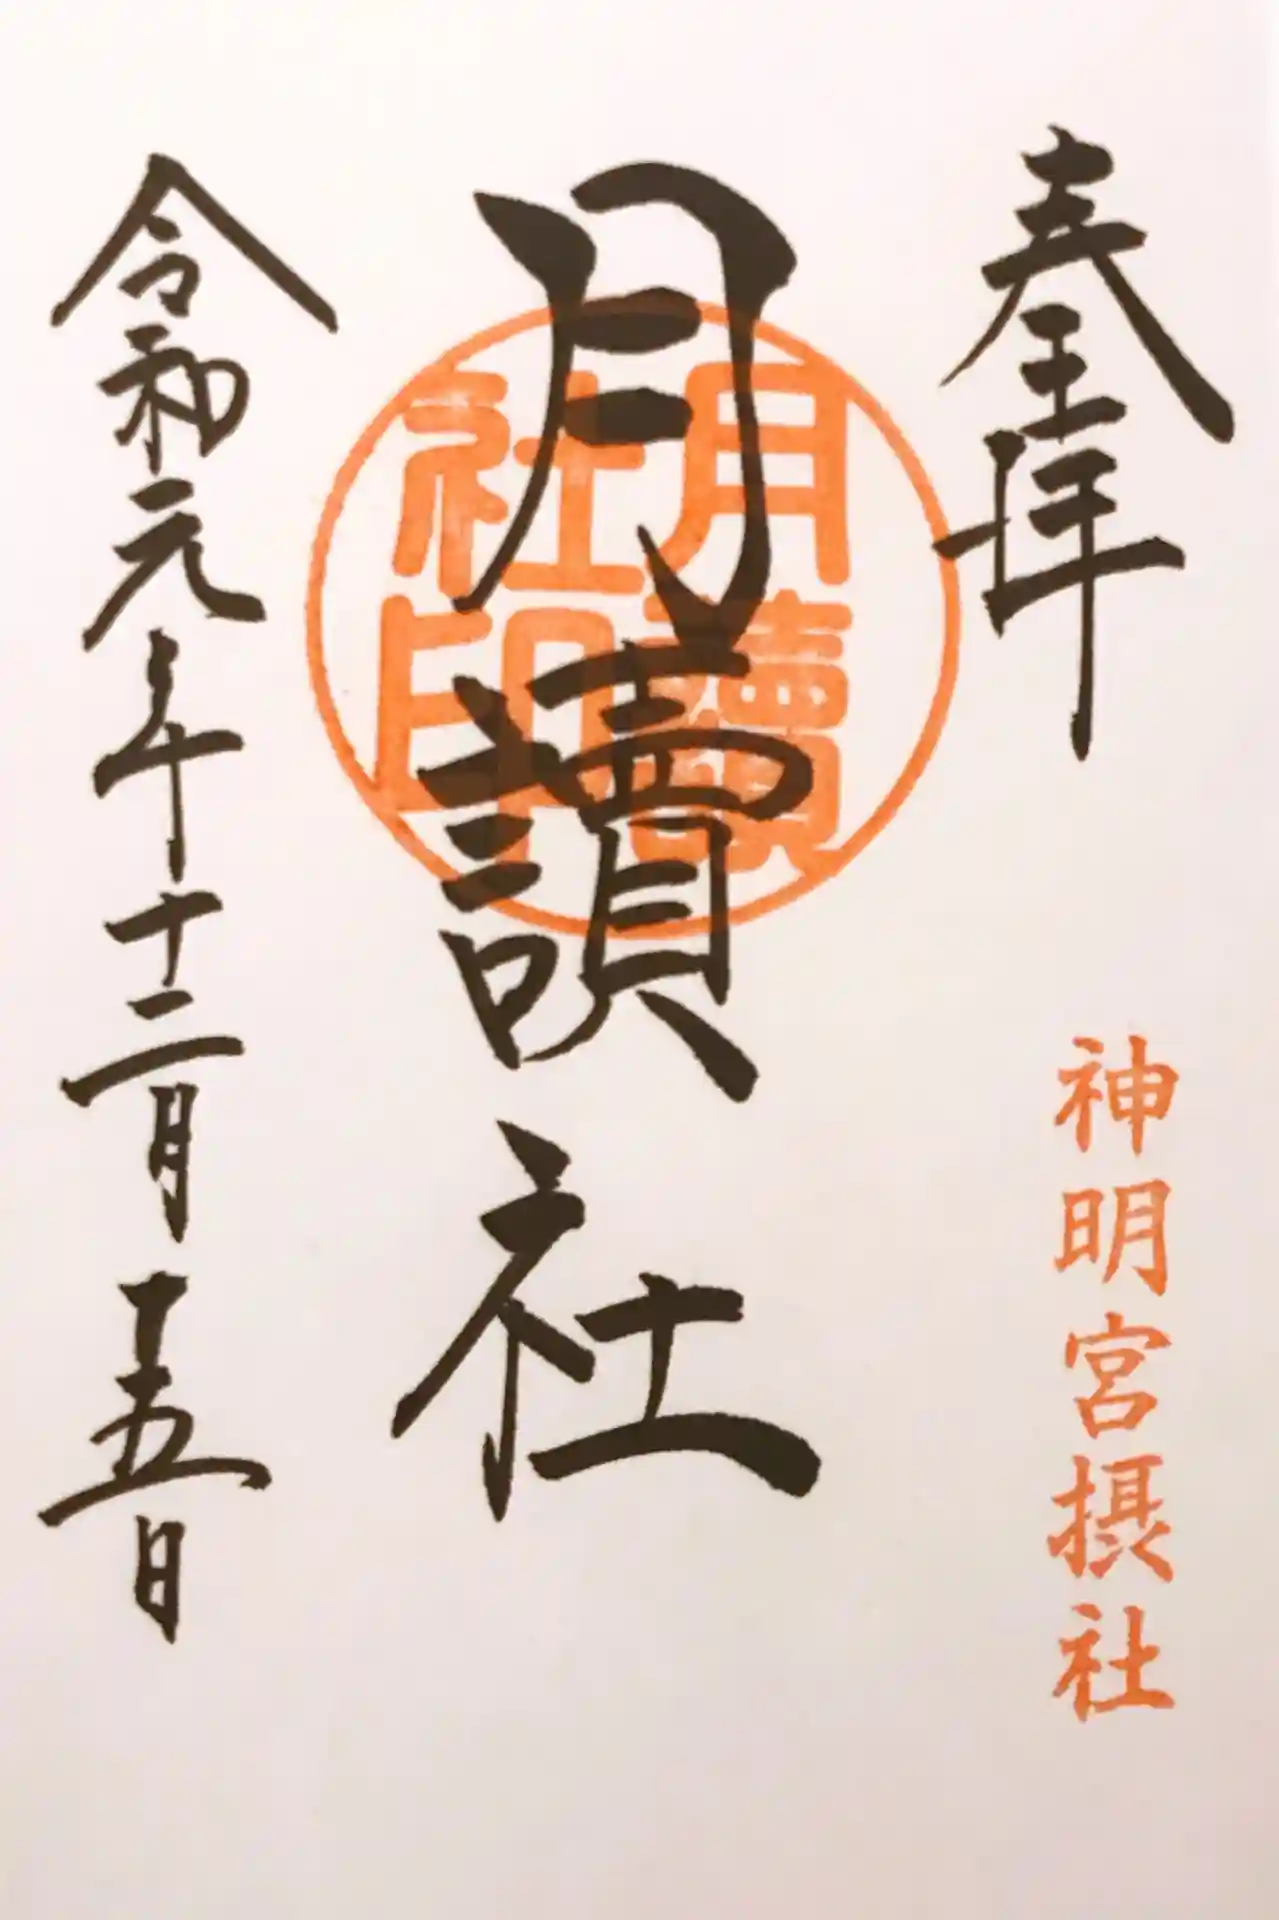 奉拝
神明宮摂社
月讀社
月讀社印
令和元年十二月十五日